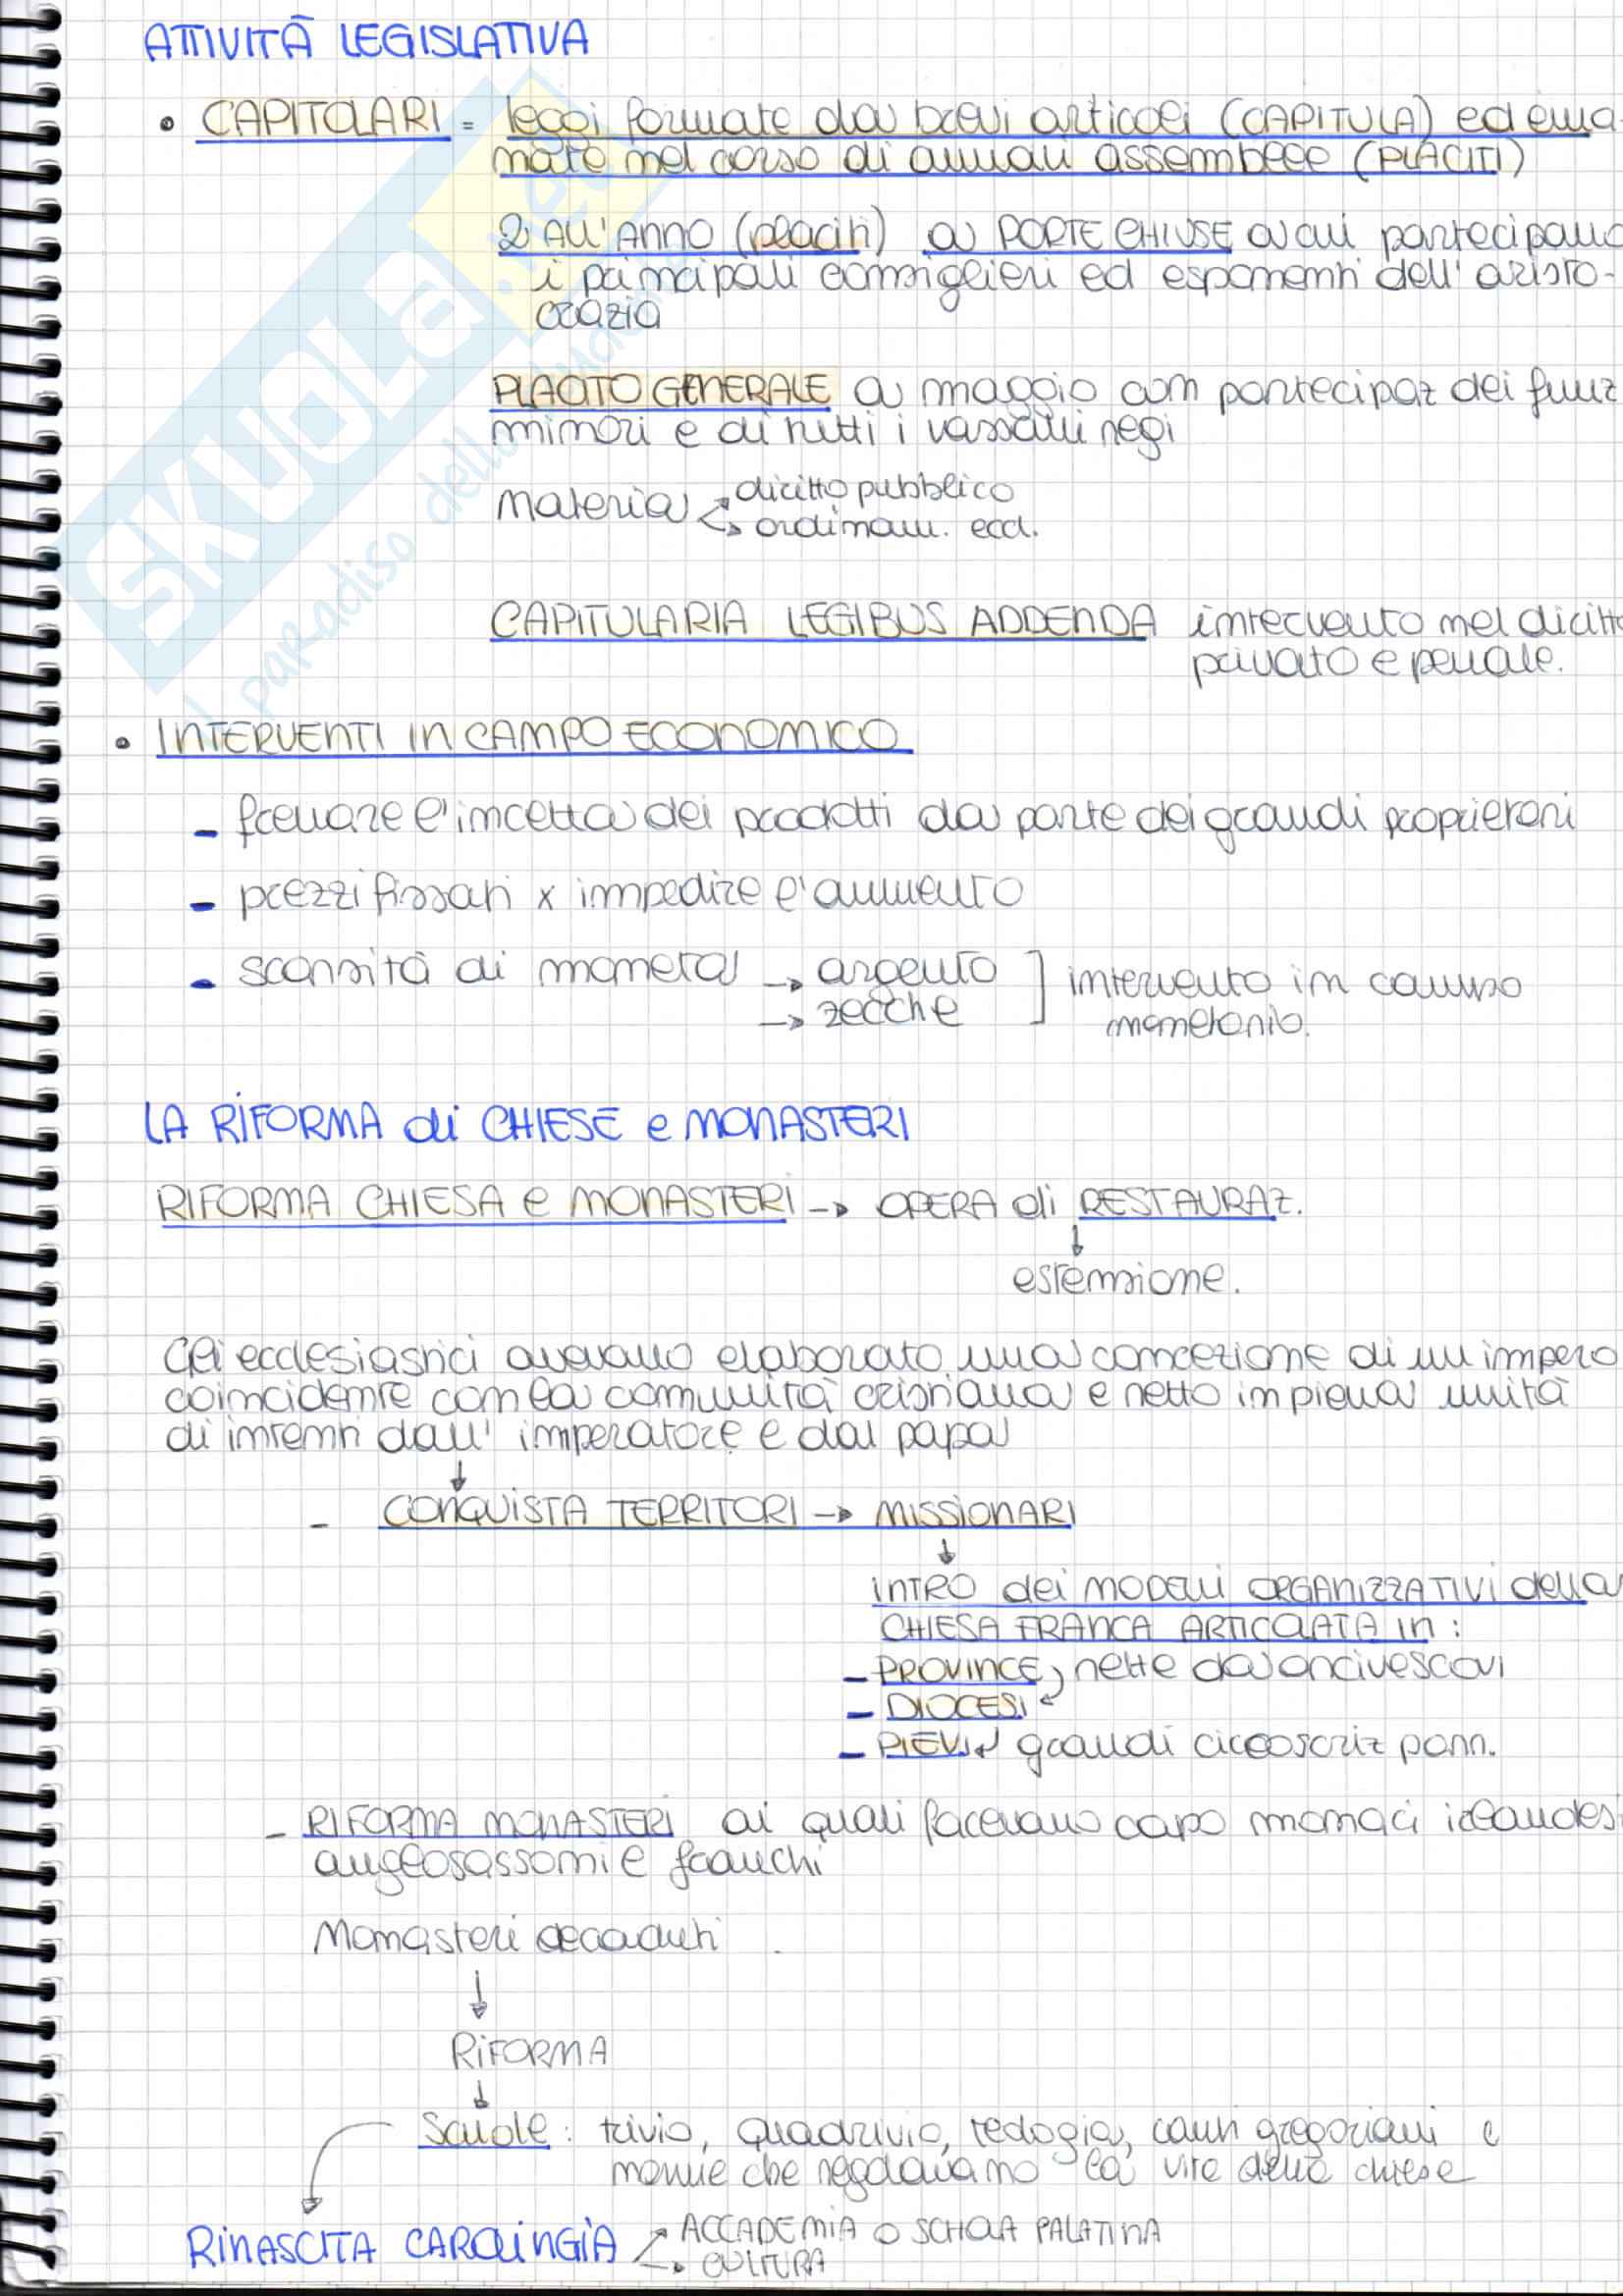 ATTIVITÀ LEGISLATIVA
• CAPITOLARI = leggi formate da brevi articoli (CAPITULA) ed ema-
nate nel corso di annuali assemblee (PLACITI)
2 ALL'ANNO (placiti) a PORTE CHIUSE a cui partecipano
i principali consiglieri ed esponenti dell'aristo-
crazia
PLACITO GENERALE a maggio con partecipaz dei funz
minori e di tutti i vassalli regi
Materia → diritto pubblico
→ ordinam. eccl.
CAPITULARIA LEGIBUS ADDENDA intervento nel diritto
privato e penale.
• INTERVENTI IN CAMPO ECONOMICO
- frenare l'incetta dei prodotti da parte dei grandi proprietari
- prezzi fissati x impedire l'aumento
- scarsità di moneta → argento ] intervento in campo
→ zecche monetario.
LA RIFORMA di CHIESE e MONASTERI
RIFORMA CHIESA e MONASTERI → OPERA di RESTAURAZ.
↓
estensione.
Gli ecclesiastici avevano elaborato una concezione di un impero
coincidente con la comunità cristiana e retto in piena unità
di intenti dall'imperatore e dal papa
↓
- CONQUISTA TERRITORI → MISSIONARI
↓
INTRO dei MODELLI ORGANIZZATIVI della
CHIESA FRANCA ARTICOLATA IN:
- PROVINCE, rette da arcivescovi
- DIOCESI
- PIEVI grandi circoscriz parr.
- RIFORMA MONASTERI ai quali facevano capo monaci irlandesi
anglosassoni e franchi
Monasteri decaduti
↓
RIFORMA
↓
Scuole: trivio, quadrivio, teologia, canti gregoriani e
norme che regolavano la vita delle chiese
RINASCITA CAROLINGIA → ACCADEMIA o SCHOLA PALATINA
→ CULTURA
SKUOLA.net
il paradiso dello studente